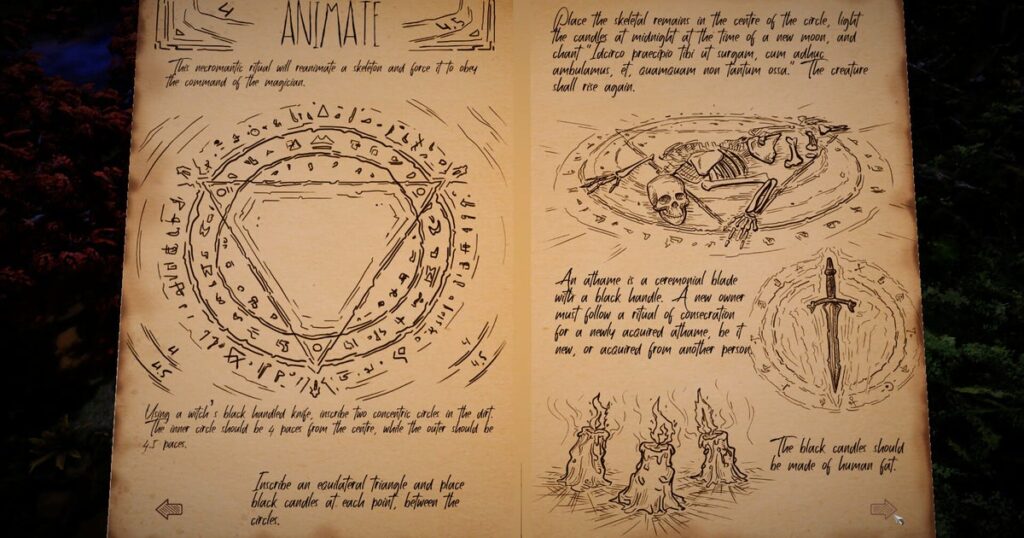 4
ANIMATE
4.5
This necromantic ritual will reanimate a skeleton and force it to obey
the command of the magician.
4
4.5
4
4.5
Using a witch's black handled knife, inscribe two concentric circles in the dirt.
The inner circle should be 4 paces from the centre, while the outer should be
4.5 paces.
Inscribe an equilateral triangle and place
black candles at each point, between the
circles.
Place the skeletal remains in the centre of the circle, light
the candles at midnight at the time of a new moon, and
chant "Idcirco praecipio tibi at surgam, cum adhuc
ambulamus, et, quamquam non tantum ossa." The creature
shall rise again.
An athame is a ceremonial blade
with a black handle. A new owner
must follow a ritual of consecration
for a newly acquired athame, be it
new, or acquired from another person.
The black candles should
be made of human fat.